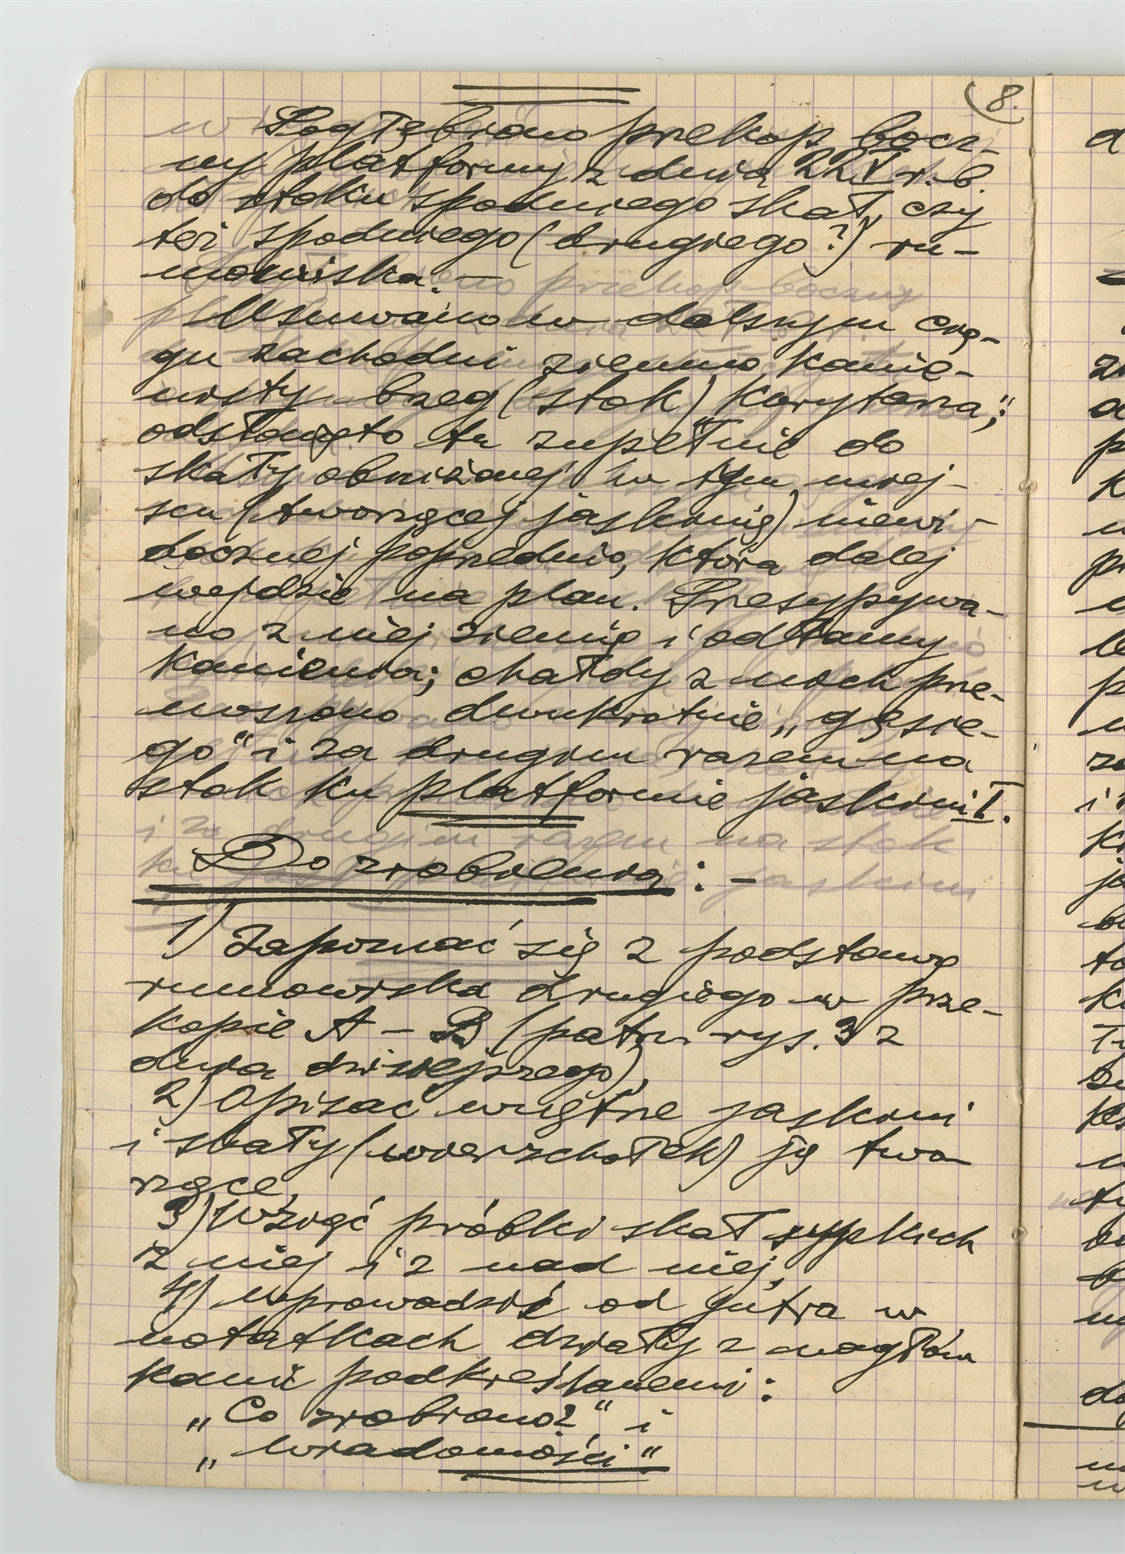 8.
Pogłębiono przekop bocz-
ny platformy z dnia 22 V r. b.
do stoku spodniego skał, czy
też spodniego (drugiego?) ru-
mowiska. —
Usuwano w dalszym cią-
gu zachodni ziemno, kamie-
nisty brzeg (stok) korytarza,"
odsłonięto tu zupełnie do
skały obniżonej w tym miej-
scu (tworzącej jaskinię) niewi-
docznej poprzednio, która dalej
wejdzie na plan. Przesypywa-
no z niej ziemię i odłamy
kamienia; chałdy z nich prze-
noszono dwukrotnie „gęsie-
go" i za drugim razem na
stok ku platformie jaskini I.
Do zrobienia : —
1) Zapoznać się z podstawą
rumowiska drugiego w prze-
kopie A – B (patrz rys. 3 z
dnia dzisiejszego),
2) Opisać wnętrze jaskini
i skały (wierzchołek) ją two-
rzące,
3) Wziąć próbki skał sypkich
z niej i z nad niej,
4) wprowadzić od jutra w
notatkach działy z nagłów
kami podkreślanemi :
„Co zrobiono?" i
„Wiadomości"